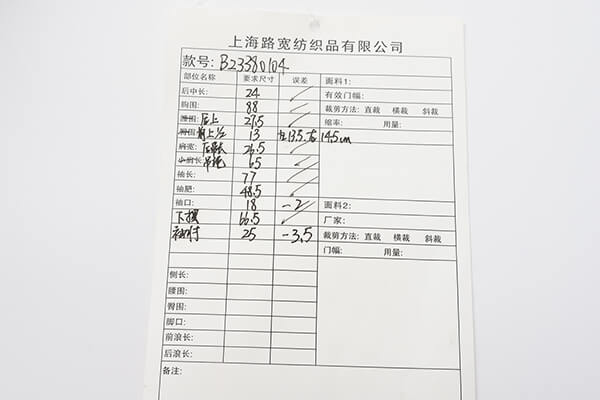 上海路宽纺织品有限公司
款号: B23380104
部位名称 要求尺寸 误差 面料1:
后中长: 24 有效门幅:
胸围: 88 裁剪方法: 直裁 横裁 斜裁
腰围: 后上 27.5 缩率: 用量:
臀围: 前上1/2 13 左13.5 右14.5cm
肩宽: 26.5
小肩长: 吊绳 65
袖长: 77
袖肥: 48.5
袖口: 18 -2 面料2:
下摆 66.5 厂家:
衩 25 -3.5 裁剪方法: 直裁 横裁 斜裁
门幅: 用量:
侧长:
腰围:
臀围:
脚口:
前浪长:
后浪长:
备注: